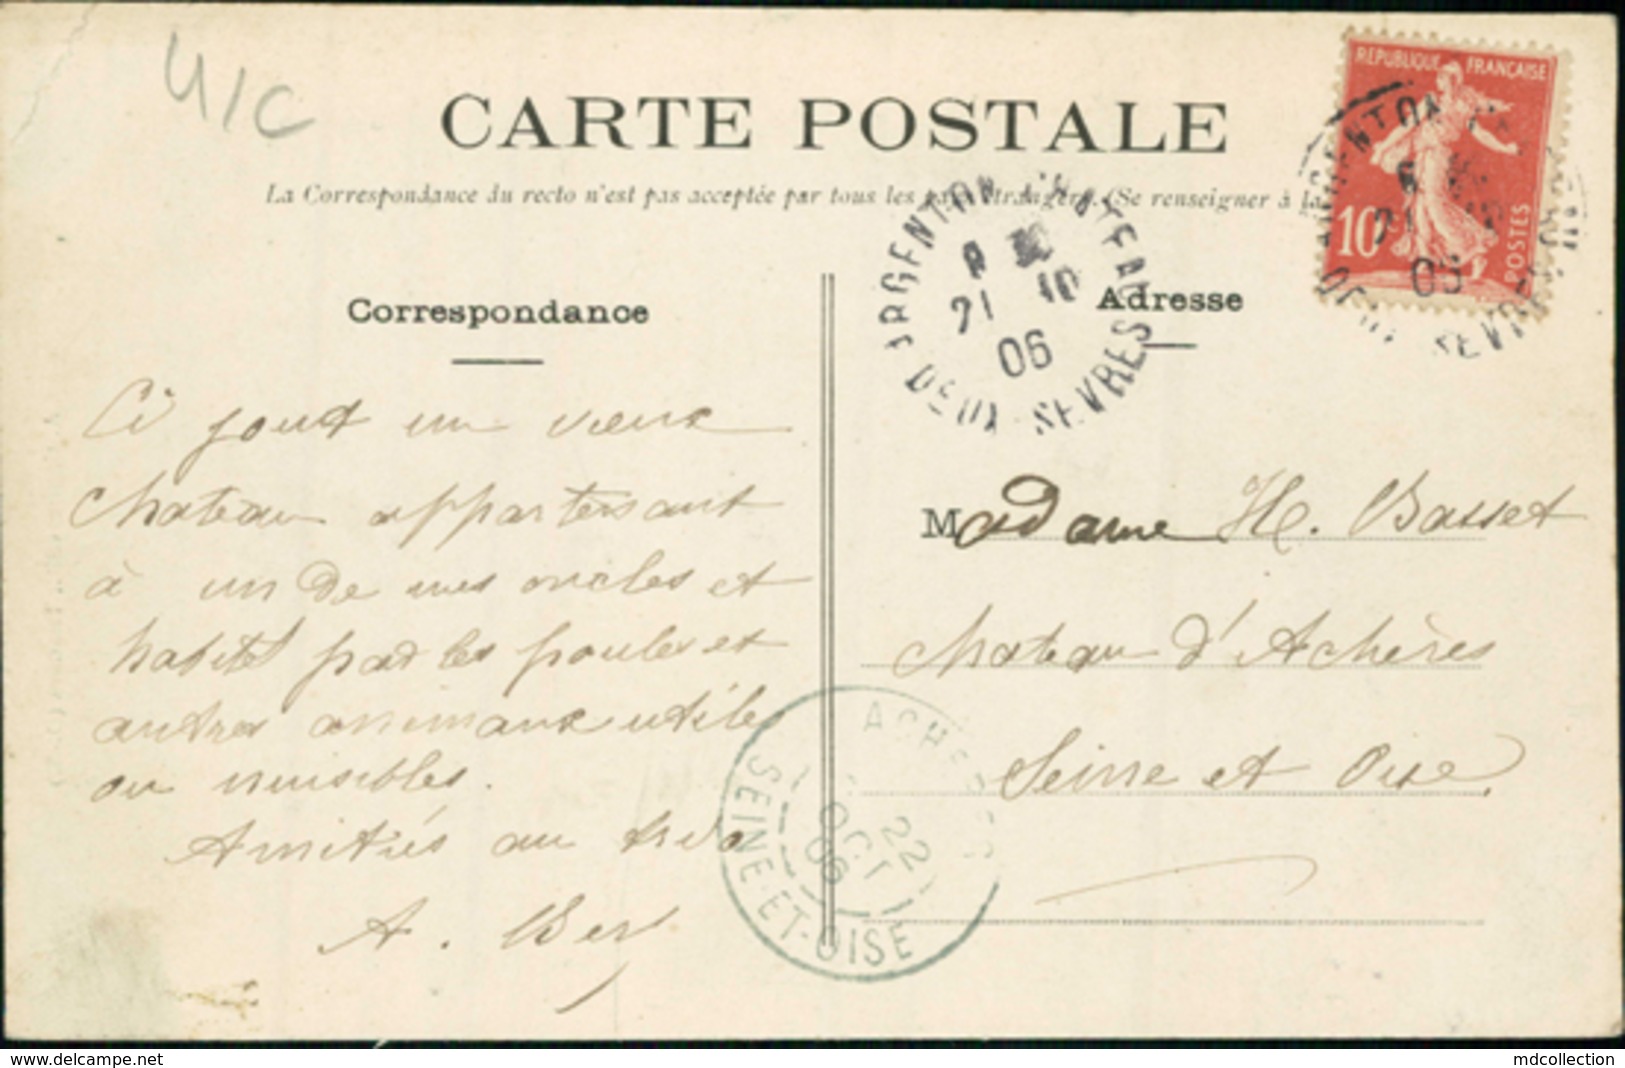 U/C
CARTE POSTALE
La Correspondance du recto n'est pas acceptée par tous les pays étrangers. (Se renseigner à la
REPUBLIQUE FRANÇAISE
10c
POSTES
ARGENTON CHATEAU
21 10
06
DEUX SEVRES
Correspondance
Adresse
Ci joint un vieux
chateau appartenant
à un de mes oncles et
habité par les poules et
autres animaux utiles
ou nuisibles.
Amitiés au trio
A.
Madame H. Basset
Chateau d'Achères
Seine et Oise.
ACHERES
22
OCT
06
SEINE-ET-OISE
delcampe.net
mdcollection